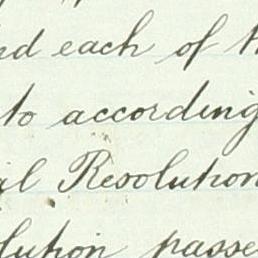 nd each of t
to according
al Resolution
lution passe